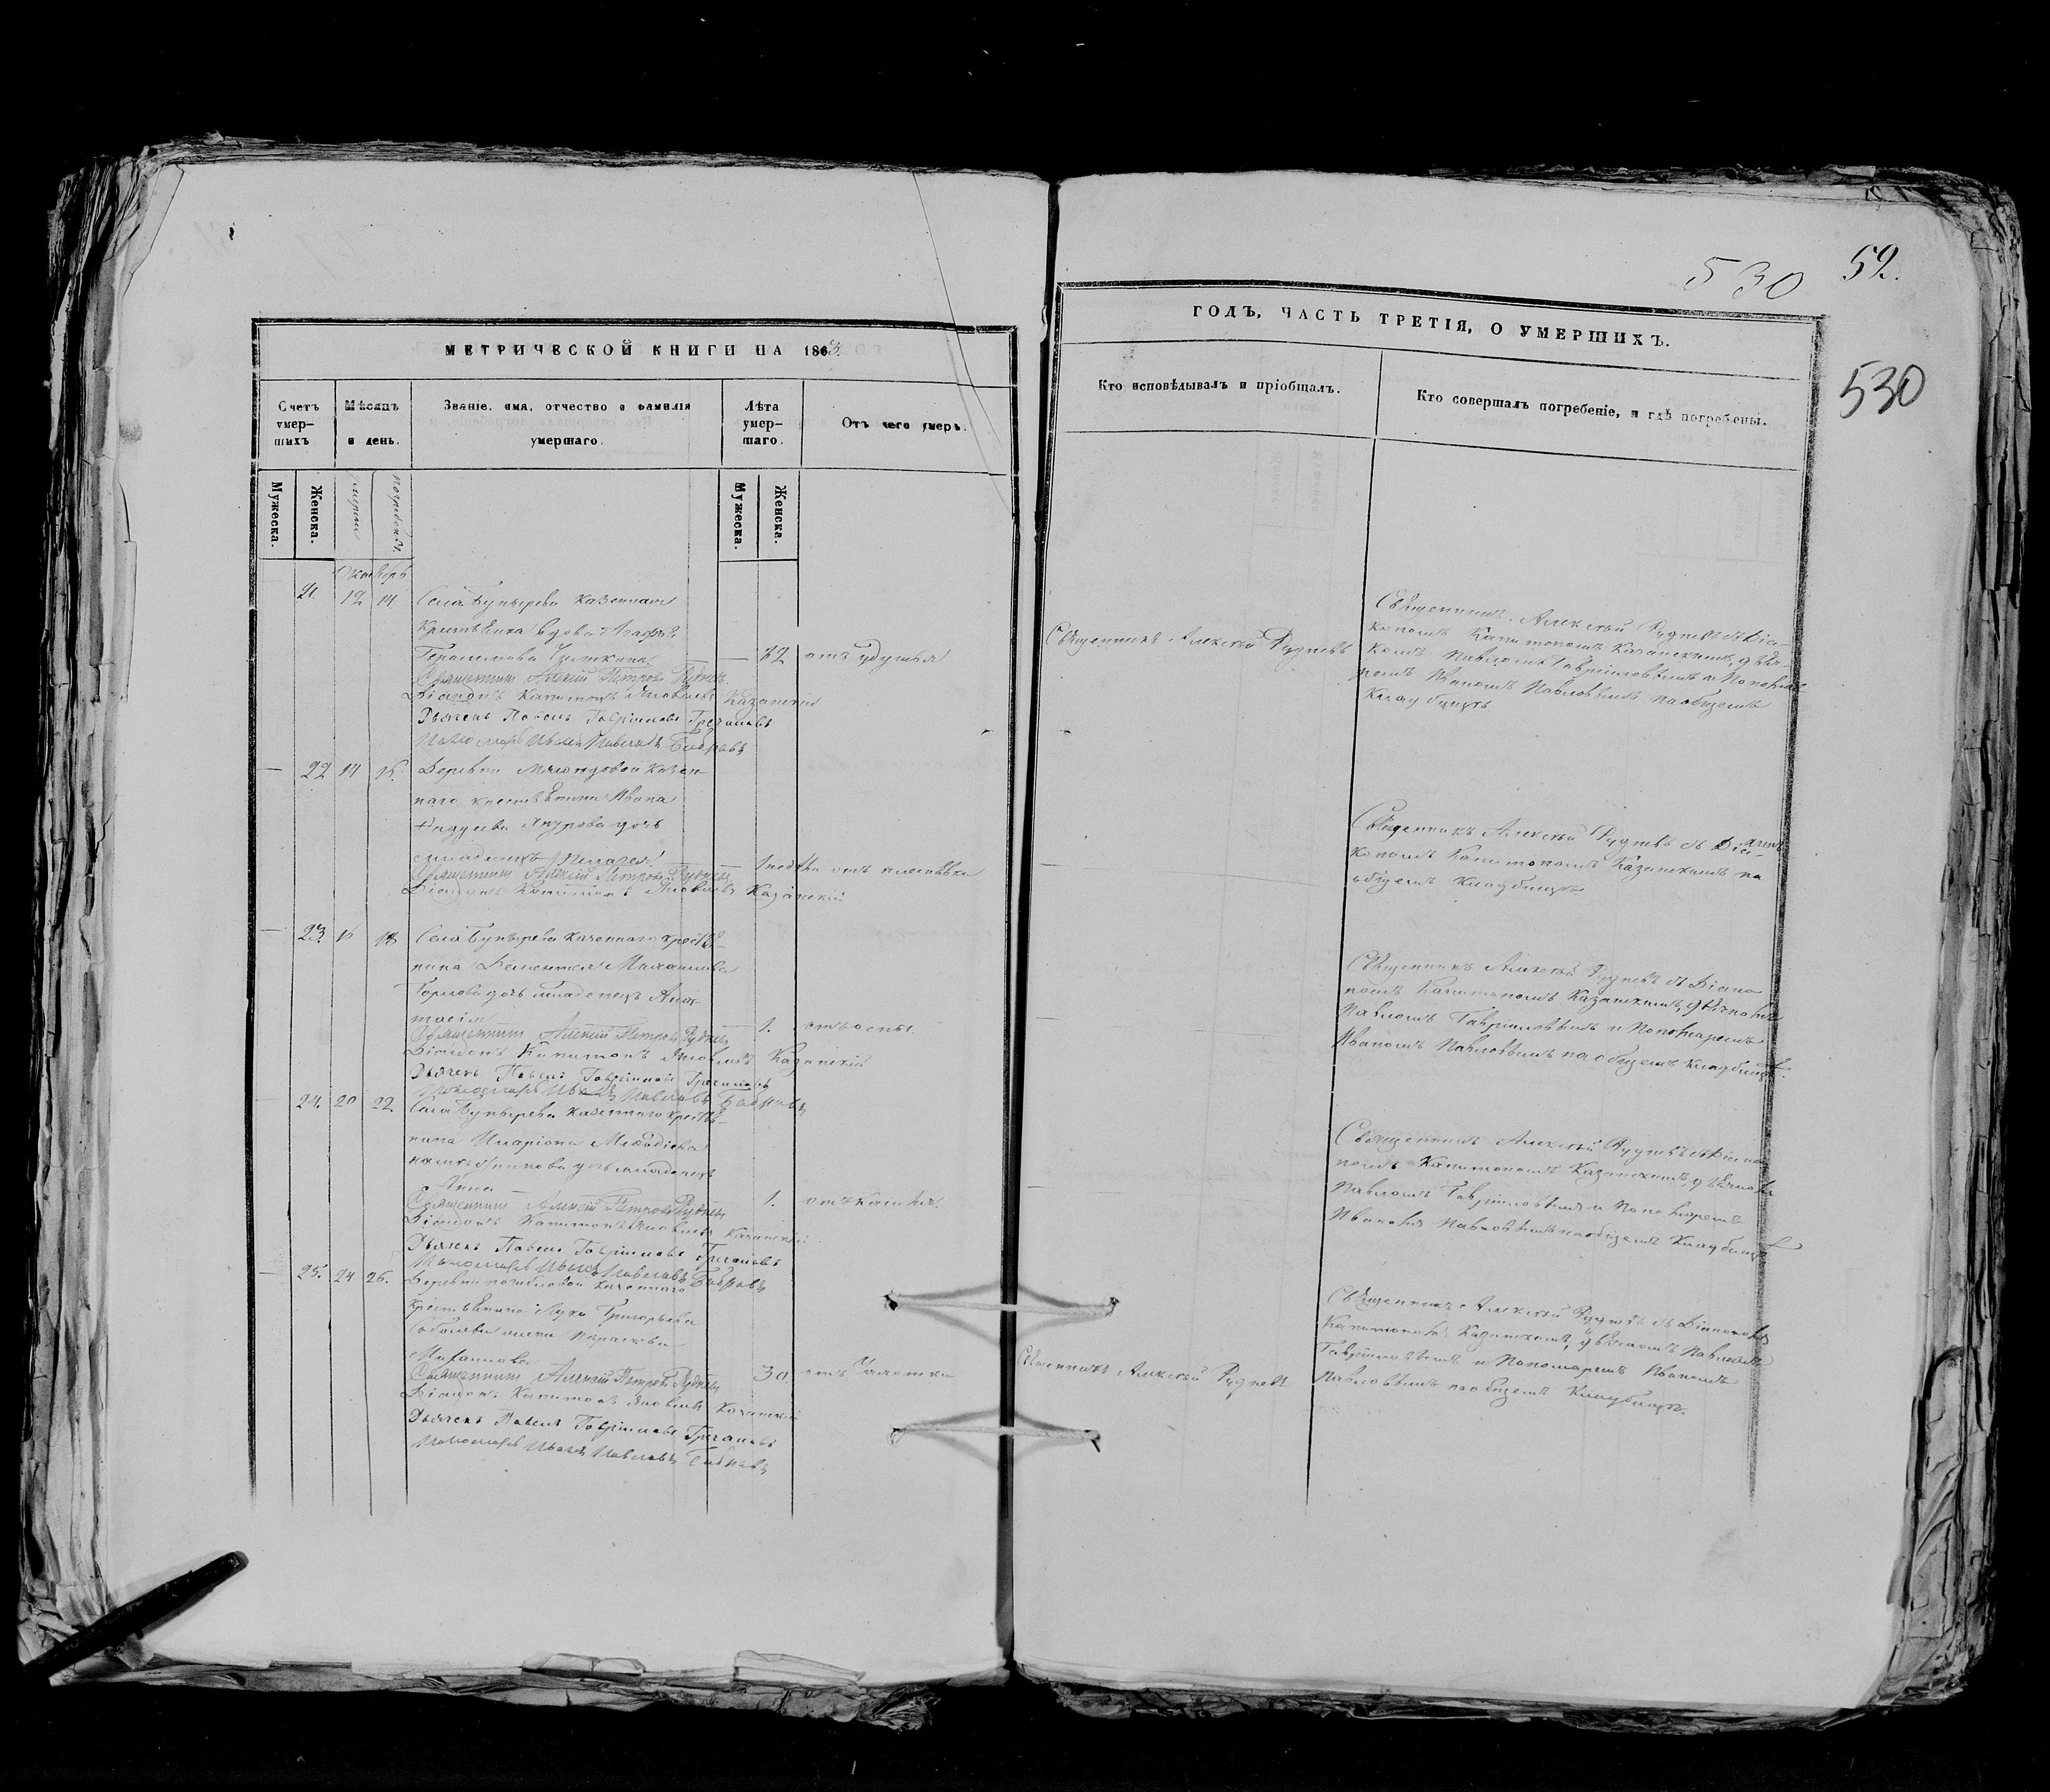 МЕТРИЧЕСКОЙ КНИГИ НА 1863
Счетъ умер-шихъ
Мѣсяцъ и день.
Званіе, имя, отчество и фамилія умершаго.
Лѣта умер-шаго.
Отъ чего умеръ.
Мужеска.
Женска.
Мужеска.
Женска.
Октябрь
21. 12 14 Села Бутырева казенная
Крестьянка вдова Агафья
Герасимова
отъ удушья
Священникъ Алексій Петровъ Рудневъ
Діаконъ Капитонъ Яковлевъ Казанскій
Дьячекъ Павелъ Гавріиловъ Гречановъ
Пономарь Иванъ Павловъ Бобровъ
22 14 Деревни казен-
наго крестьянина Ивана
дочь
младенецъ Пелагея
Священникъ Алексій Петровъ Рудневъ
Діаконъ Капитонъ Яковлевъ Казанскій
23. 18 Села Бутырева казеннаго крестья-
нина Дементія Михаилова
дочь младенецъ Анас-
тасія 1. отъ оспы.
Священникъ Алексій Петровъ Рудневъ
Діаконъ Капитонъ Яковлевъ Казанскій
Дьячекъ Павелъ Гавріиловъ Гречановъ
Пономарь Иванъ Павловъ Бобровъ
24. 20 22. Села Бутырева казеннаго крестья-
нина Иларіона Меѳодіева
дочь младенецъ
Анна 1. отъ кашля.
Священникъ Алексій Петровъ Рудневъ
Діаконъ Капитонъ Яковлевъ Казанскій
Дьячекъ Павелъ Гавріиловъ Гречановъ
Пономарь Иванъ Павловъ Бобровъ
25. 24 26. Деревни казеннаго
крестьянина Луки Григорьева
Соболева жена Параскева
Михаилова 30. отъ чахотки
Священникъ Алексій Петровъ Рудневъ
Діаконъ Капитонъ Яковлевъ Казанскій
Дьячекъ Павелъ Гавріиловъ Гречановъ
Пономарь Иванъ Павловъ Бобровъ
530 52.
530
ГОДЪ, ЧАСТЬ ТРЕТІЯ, О УМЕРШИХЪ.
Кто исповѣдывалъ и пріобщалъ.
Кто совершалъ погребеніе, и гдѣ погребены.
Священникъ Алексѣй Рудневъ
Священникъ Алексѣй Рудневъ съ Діа-
кономъ Капитономъ Казанскимъ, дьяч-
комъ Павломъ Гавріиловымъ и Понома-
ремъ Иваномъ Павловымъ на общемъ
Кладбищѣ
Священникъ Алексѣй Рудневъ съ Діа-
кономъ Капитономъ Казанскимъ на
общемъ Кладбищѣ
Священникъ Алексѣй Рудневъ съ Діако-
номъ Капитономъ Казанскимъ, дьячкомъ
Павломъ Гавріиловымъ и Пономаремъ
Иваномъ Павловымъ на общемъ Кладбищѣ.
Священникъ Алексѣй Рудневъ съ Діако-
номъ Капитономъ Казанскимъ, дьячкомъ
Павломъ Гавріиловымъ и Пономаремъ
Иваномъ Павловымъ на общемъ Кладбищѣ
Священникъ Алексѣй Рудневъ
Священникъ Алексѣй Рудневъ съ Діакономъ
Капитономъ Казанскимъ, дьячкомъ Павломъ
Гавріиловымъ и Пономаремъ Иваномъ
Павловымъ на общемъ Кладбищѣ.